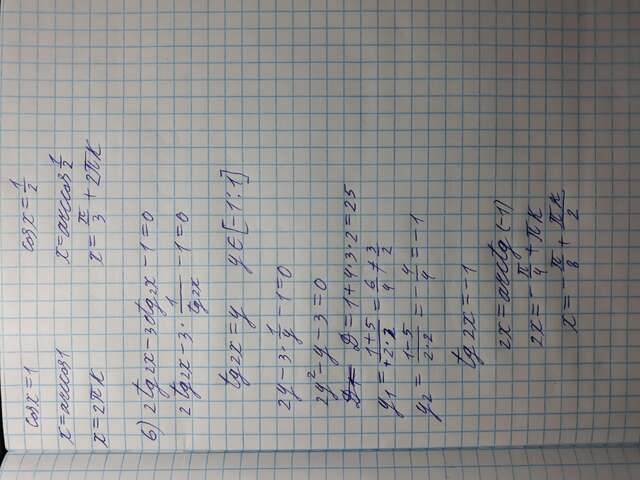 cos x = 1 cos x = 1/2
x = arccos 1 x = arccos 1/2
x = 2πk x = π/3 + 2πk
б) 2tg2x - 3ctg2x - 1 = 0
2tg2x - 3 · 1/tg2x - 1 = 0
tg2x = y y ∈ [-1; 1]
2y - 3 · 1/y - 1 = 0
2y² - y - 3 = 0
D = 1 + 4·3·2 = 25
y₁ = (1+5)/(2·2) = 6/4 = 3/2
y₂ = (1-5)/(2·2) = -4/4 = -1
tg2x = -1
2x = arctg(-1)
2x = -π/4 + πk
x = -π/8 + πk/2